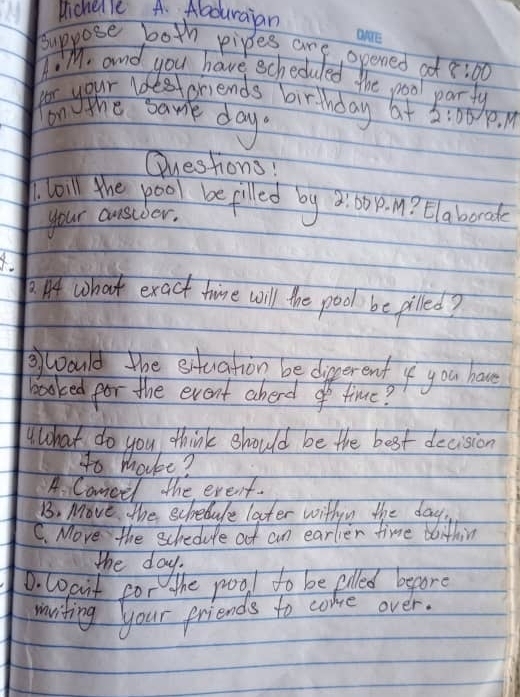 Michelle A. Abdurajan
DATE
Suppose both pipes are opened at 8:00
A.M. and you have scheduled the pool party
for your bestfriends birthday at 2:00 P.M
on the same day.
Questions:
1. Will the pool be filled by 2:00 P.M? Elaborate
your answer.
2. At what exact time will the pool be filled?
3.) Would the situation be different if you have
booked for the event aherd of time?
4. What do you think should be the best decision
to make?
A. Cancel the event.
B. Move the schedule later within the day.
C. Move the schedule at an earlier time within
the day.
D. Wait for the pool to be filled before
inviting your friends to come over.